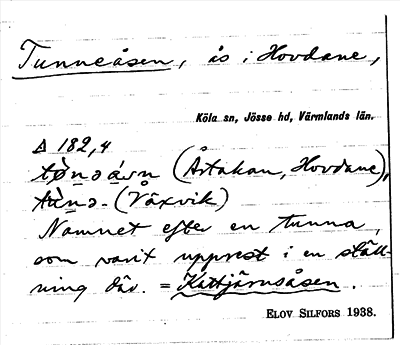 Tunneåsen, ås i Hovdane,
Köla sn, Jösse hd, Värmlands län.
Δ 182,4
tø̀nəá.sn (Årtakan, Hovdane),
tù̀nə- (Växvik)
Namnet efter en tunna,
som varit upprest i en ställ-
ning där. = Kattjärnsåsen.
ELOV SILFORS 1938.